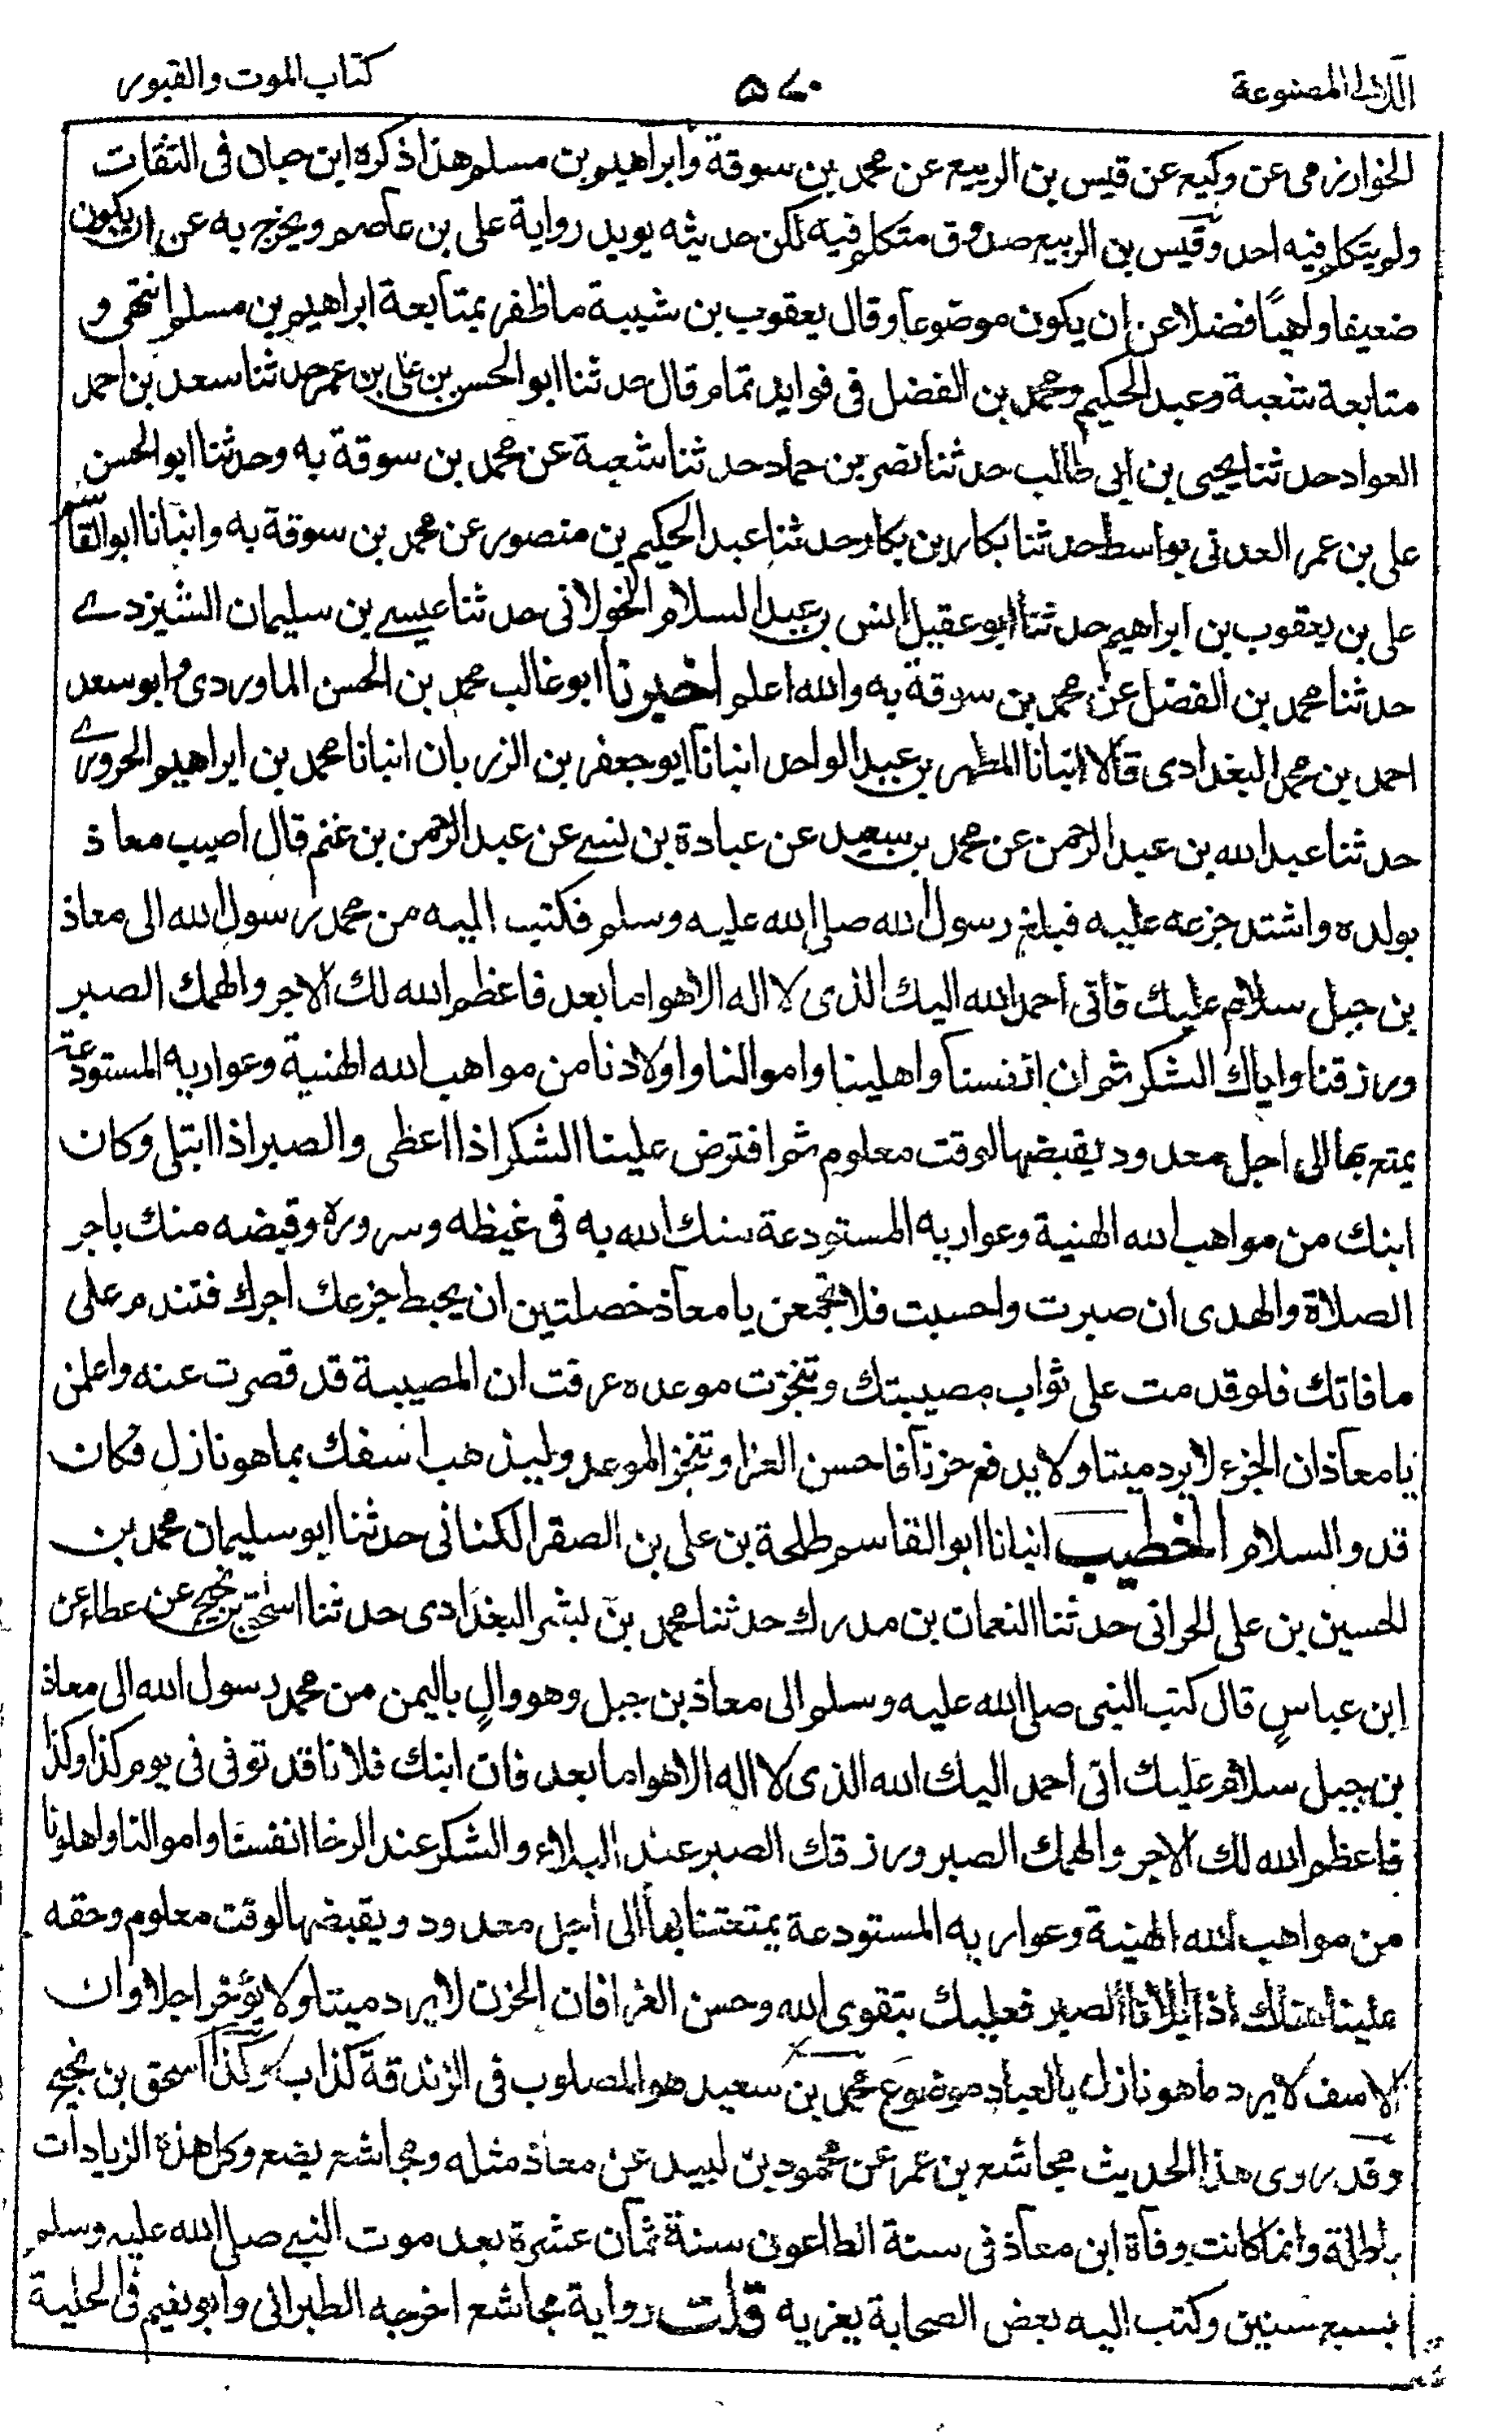 اللآلى المصنوعة
۵۷۰
كتاب الموت والقبور
الخوارزمى عن وكيع عن قيس بن الربيع عن محمد بن سوقة وابراهيم بن مسلم هذا ذكره ابن حبان فى الثقات
ولم يتكلم فيه احد وقيس بن الربيع صدوق متكلم فيه لكن حديثه يويد رواية على بن عاصم ويخرج به عن ان يكون
ضعيفا واهيًا فضلا عن ان يكون موضوعا وقال يعقوب بن شيبة ما ظفر بمتابعة ابراهيم بن مسلم انتهى و
متابعة شعبة وعبد الحكيم ومحمد بن الفضل فى فوايد تمام قال حدثنا ابو الحسن بن على بن عمر حدثنا سعد بن احمد
العواد حدثنا يحيى بن ابى طالب حدثنا نصر بن حماد حدثنا شعبة عن محمد بن سوقة به وحدثنا ابو الحسن
على بن عمر العدنى بواسط حدثنا بكار بن بكار حدثنا عبد الحكيم بن منصور عن محمد بن سوقة به وانبانا ابو القاسم
على بن يعقوب بن ابراهيم حدثنا ابو عقيل انس بن عبد السلام الخولانى حدثنا عيسے بن سليمان الشيزدے
حدثنا محمد بن الفضل عن محمد بن سوقة به والله اعلم اخبرنا ابو غالب محمد بن الحسن الماوردى وابو سعد
احمد بن محمد البغدادى قالا انبانا المطهر بن عبد الواحد انبانا ابو جعفر بن الزربان انبانا محمد بن ابراهيم الحرورے
حدثنا عبد الله بن عبد الرحمن عن محمد بن سعيد عن عبادة بن نسے عن عبد الرحمن بن غنم قال اصيب معاذ
بولده واشتد جزعه عليه فبلغ رسول الله صلى الله عليه وسلم فكتب اليه من محمد رسول الله الى معاذ
بن جبل سلام عليك فانى احمد الله اليك الذى لا اله الا هو اما بعد فاعظم الله لك الاجر والهمك الصبر
ورزقنا واياك الشكر ثم ان انفسنا واهلينا واموالنا واولادنا من مواهب الله الهنية وعواريه المستودعة
يمتع بها الى اجل معدود يقبضها لوقت معلوم ثم افترض علينا الشكر اذا اعطى والصبر اذا ابتلى وكان
ابنك من مواهب الله الهنية وعواريه المستودعة متعك الله به فى غيظه وسروره وقبضه منك باجر
الصلاة والهدى ان صبرت واحسبت فلا تجمعن يا معاذ خصلتين ان يحبط جزعك اجرك فتندم على
ما فاتك فلو قدمت على ثواب مصيبتك وتنجزت موعده عرفت ان المصيبة قد قصرت عنه واعلمن
يا معاذ ان الجزع لا يرد ميتا ولا يدفع حزنا فاحسن العزا وتنجز الموعد وليذهب اسفك بما هو نازل فكان
قد والسلام الخطيب انبانا ابو القاسم طلحة بن على بن الصقر الكنانى حدثنا ابو سليمان محمد بن
الحسين بن على الحرانى حدثنا النعمان بن مدرك حدثنا محمد بن بشر البغدادى حدثنا اسحق بن نجيح عن عطاء عن
ابن عباسٍ قال كتب النبى صلى الله عليه وسلم الى معاذ بن جبل وهو والٍ باليمن من محمد رسول الله الى معاذ
بن جبل سلام عليك انى احمد اليك الله الذى لا اله الا هو اما بعد فان ابنك فلانا قد توفى فى يوم كذا وكذا
فاعظم الله لك الاجر والهمك الصبر ورزقك الصبر عند البلاء والشكر عند الرخا انفسنا واموالنا واهلونا
من مواهب الله الهنية وعواريه المستودعة يمتعنا بها الى اجل معدود ويقبضها لوقت معلوم وحقه
علينا هناك اذا ابلانا الصبر فعليك بتقوى الله وحسن العزا فان الحزن لا يرد ميتا ولا يؤخر اجلا وان
الاسف لا يرد ما هو نازل بالعباد موضوع محمد بن سعيد هو المصلوب فى الزندقة كذاب وكذا اسحق بن نجيح
وقد روى هذا الحديث مجاشع بن عمر عن محمود بن لبيد عن معاذ مثله ومجاشع يضع وكل هذه الزيادات
باطلة وانما كانت وفاة ابن معاذ فى سنة الطاعون سنة ثمان عشرة بعد موت النبے صلى الله عليه وسلم
بسبع سنين وكتب اليه بعض الصحابة يعزيه قلت رواية مجاشع اخرجه الطبرانى وابو نعيم فى الحلية